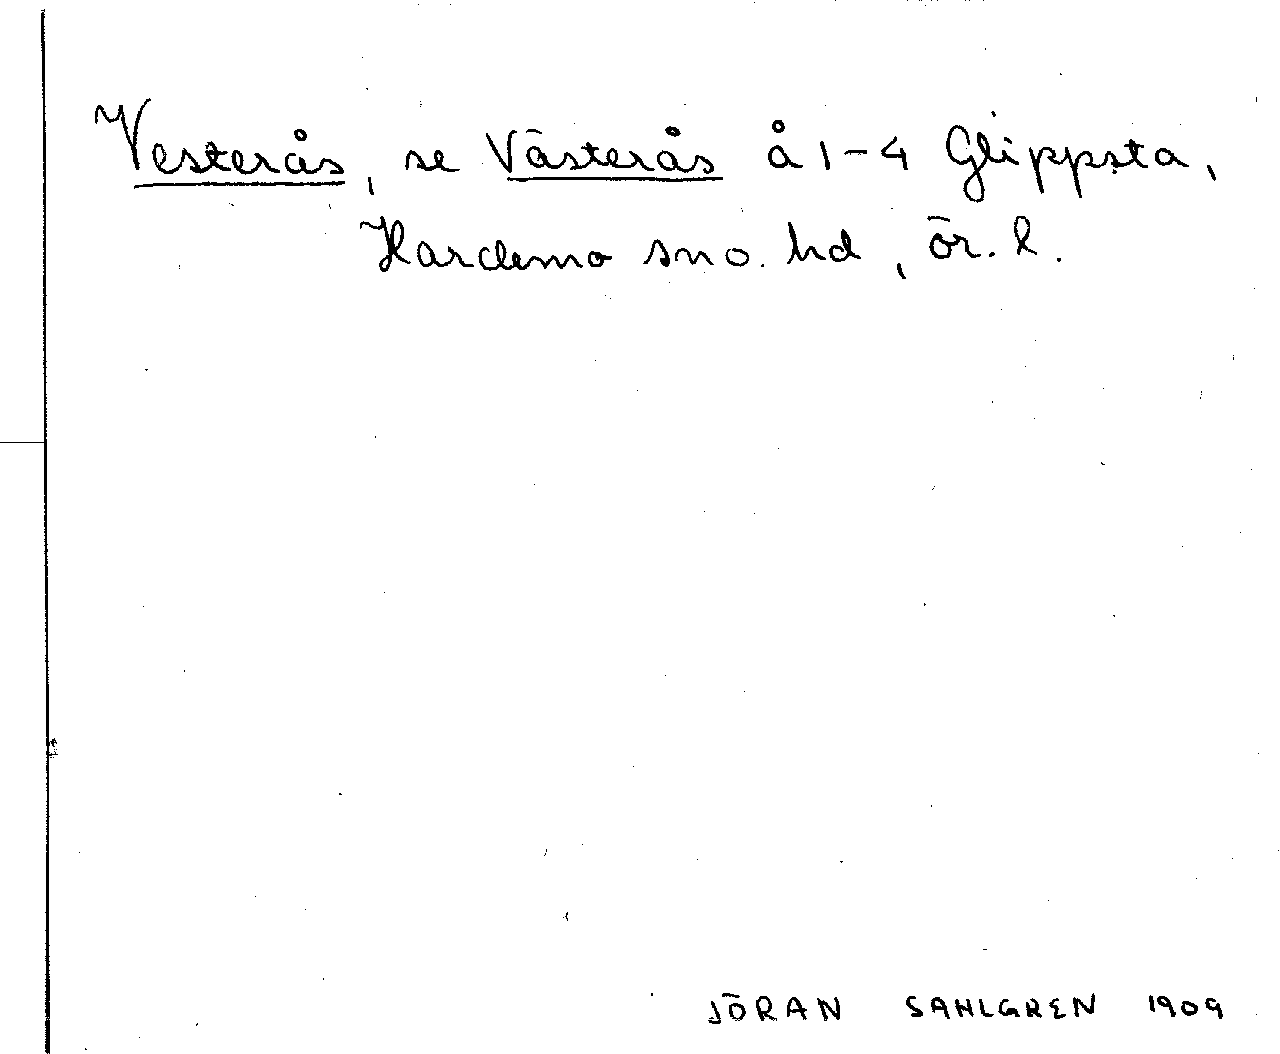 Vesterås, se Västerås å 1-4 Glippsta,
Hardemo sno. hd, ör. l.
JÖRAN SAHLGREN 1909